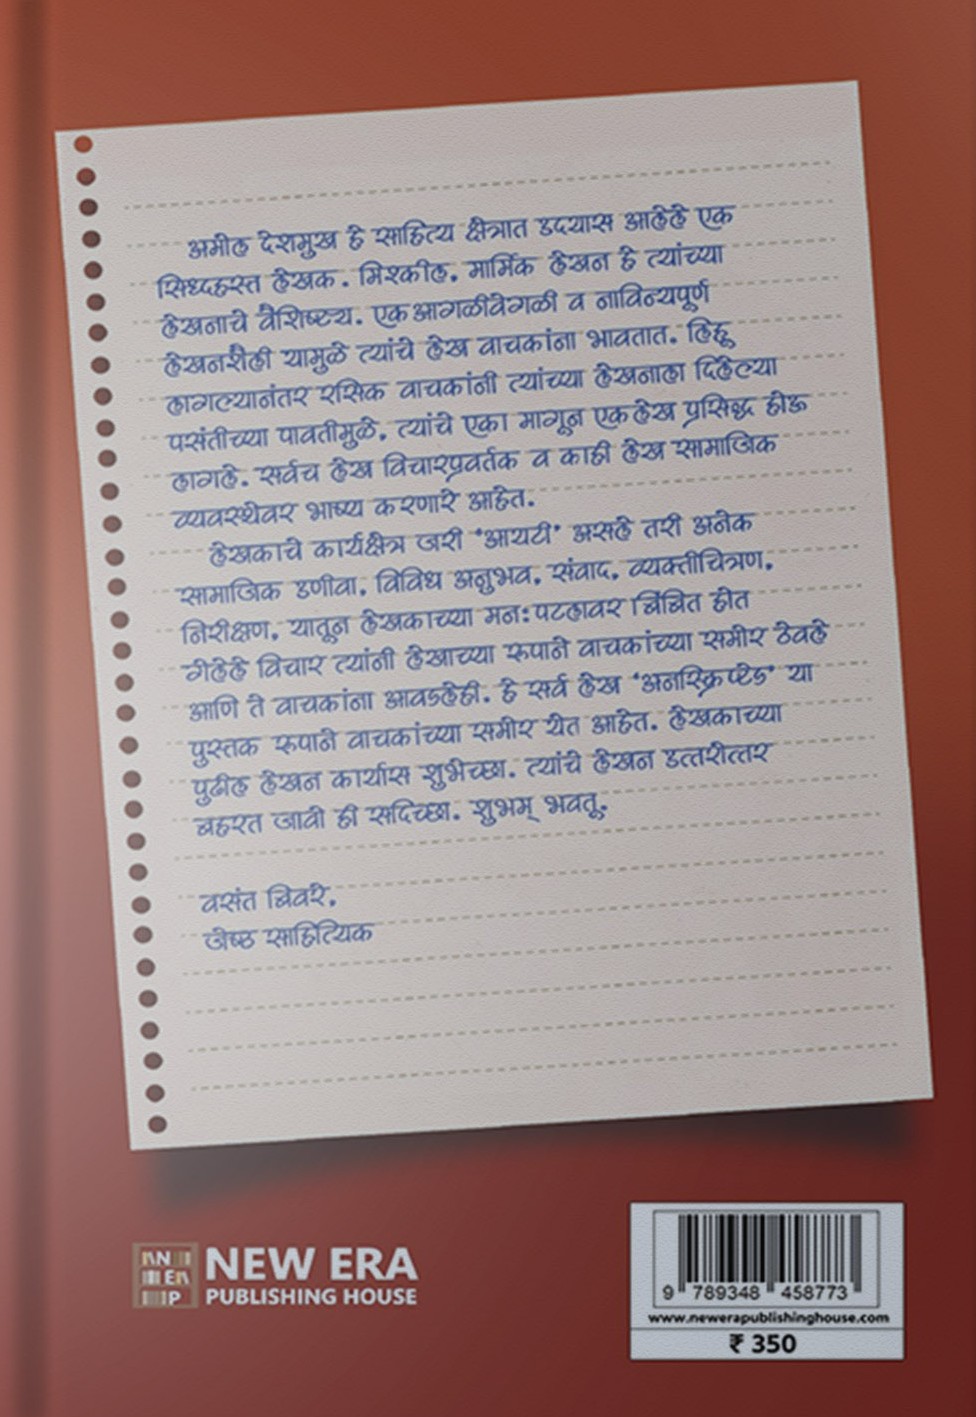 अमोल देशमुख हे साहित्य क्षेत्रात उदयास आलेले एक
सिध्दहस्त लेखक. मिश्कील, मार्मिक लेखन हे त्यांच्या
लेखनाचे वैशिष्ट्य. एक आगळीवेगळी व नाविन्यपूर्ण
लेखनशैली यामुळे त्यांचे लेख वाचकांना भावतात. लिहू
लागल्यानंतर रसिक वाचकांनी त्यांच्या लेखनाला दिलेल्या
पसंतीच्या पावतीमुळे, त्यांचे एका मागून एक लेख प्रसिद्ध होऊ
लागले. सर्वच लेख विचारप्रवर्तक व काही लेख सामाजिक
व्यवस्थेवर भाष्य करणारे आहेत.
लेखकाचे कार्यक्षेत्र जरी 'आयटी' असले तरी अनेक
सामाजिक उणीवा, विविध अनुभव, संवाद, व्यक्तीचित्रण,
निरीक्षण, यातून लेखकाच्या मन:पटलावर बिंबित होत
गेलेले विचार त्यांनी लेखाच्या रुपाने वाचकांच्या समोर ठेवले
आणि ते वाचकांना आवडलेही. हे सर्व लेख 'अनस्क्रिप्टेड' या
पुस्तक रुपाने वाचकांच्या समोर येत आहेत. लेखकाच्या
पुढील लेखन कार्यास शुभेच्छा. त्यांचे लेखन उत्तरोत्तर
बहरत जावो ही सदिच्छा. शुभम् भवतू.
वसंत बिवरे,
जेष्ठ साहित्यिक
NEW ERA
PUBLISHING HOUSE
N
E
P
9 789348 458773
www.newerapublishinghouse.com
₹ 350